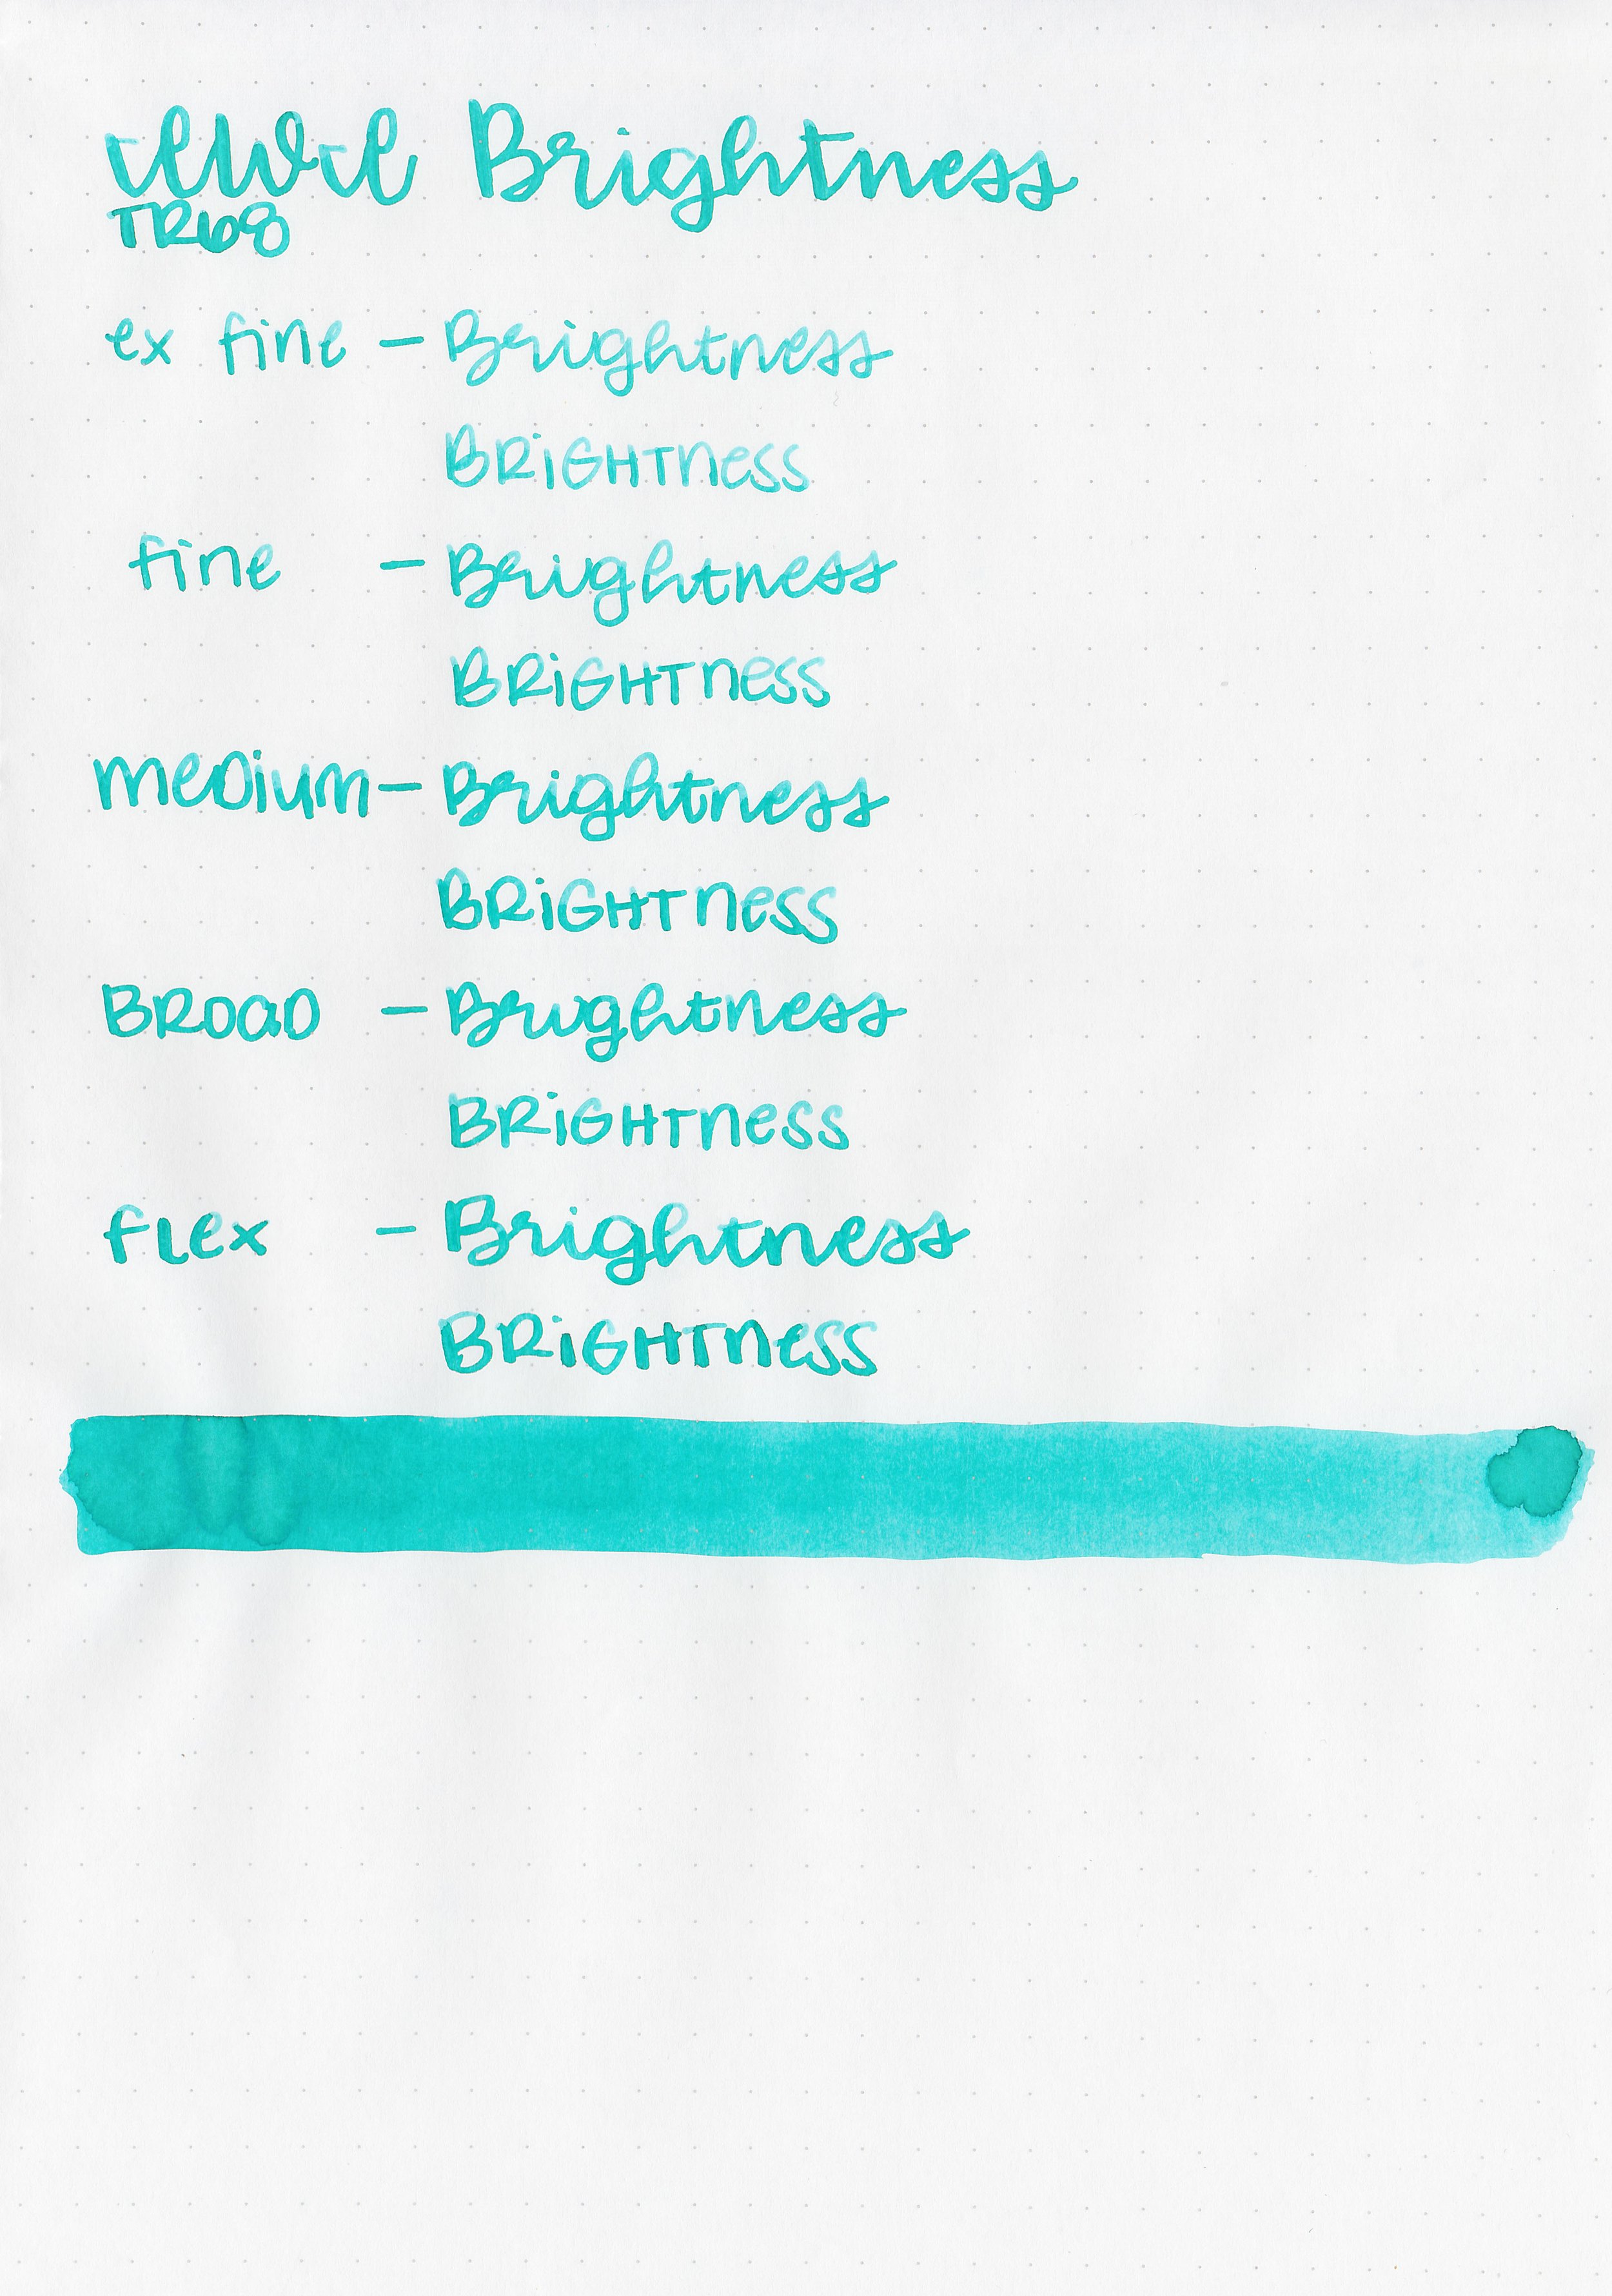 IWI Brightness
TR68
ex fine - Brightness
BRiGHTness
fine - Brightness
BRiGHTness
meDium - Brightness
BRiGHTness
BROaD - Brightness
BRiGHTness
fLex - Brightness
BRiGHTness